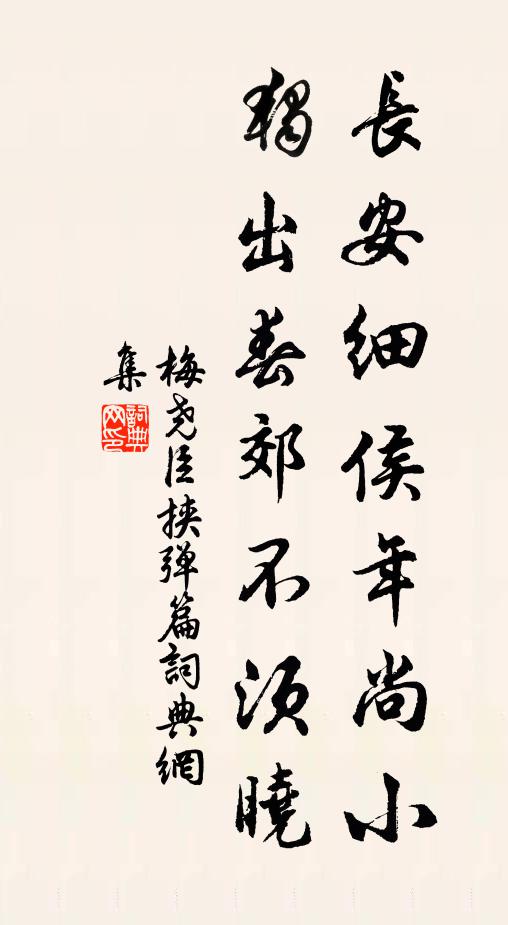 長安細侯年尚小
獨出春郊不須曉
梅堯臣挾彈篇詞典網
集
詞典
网印